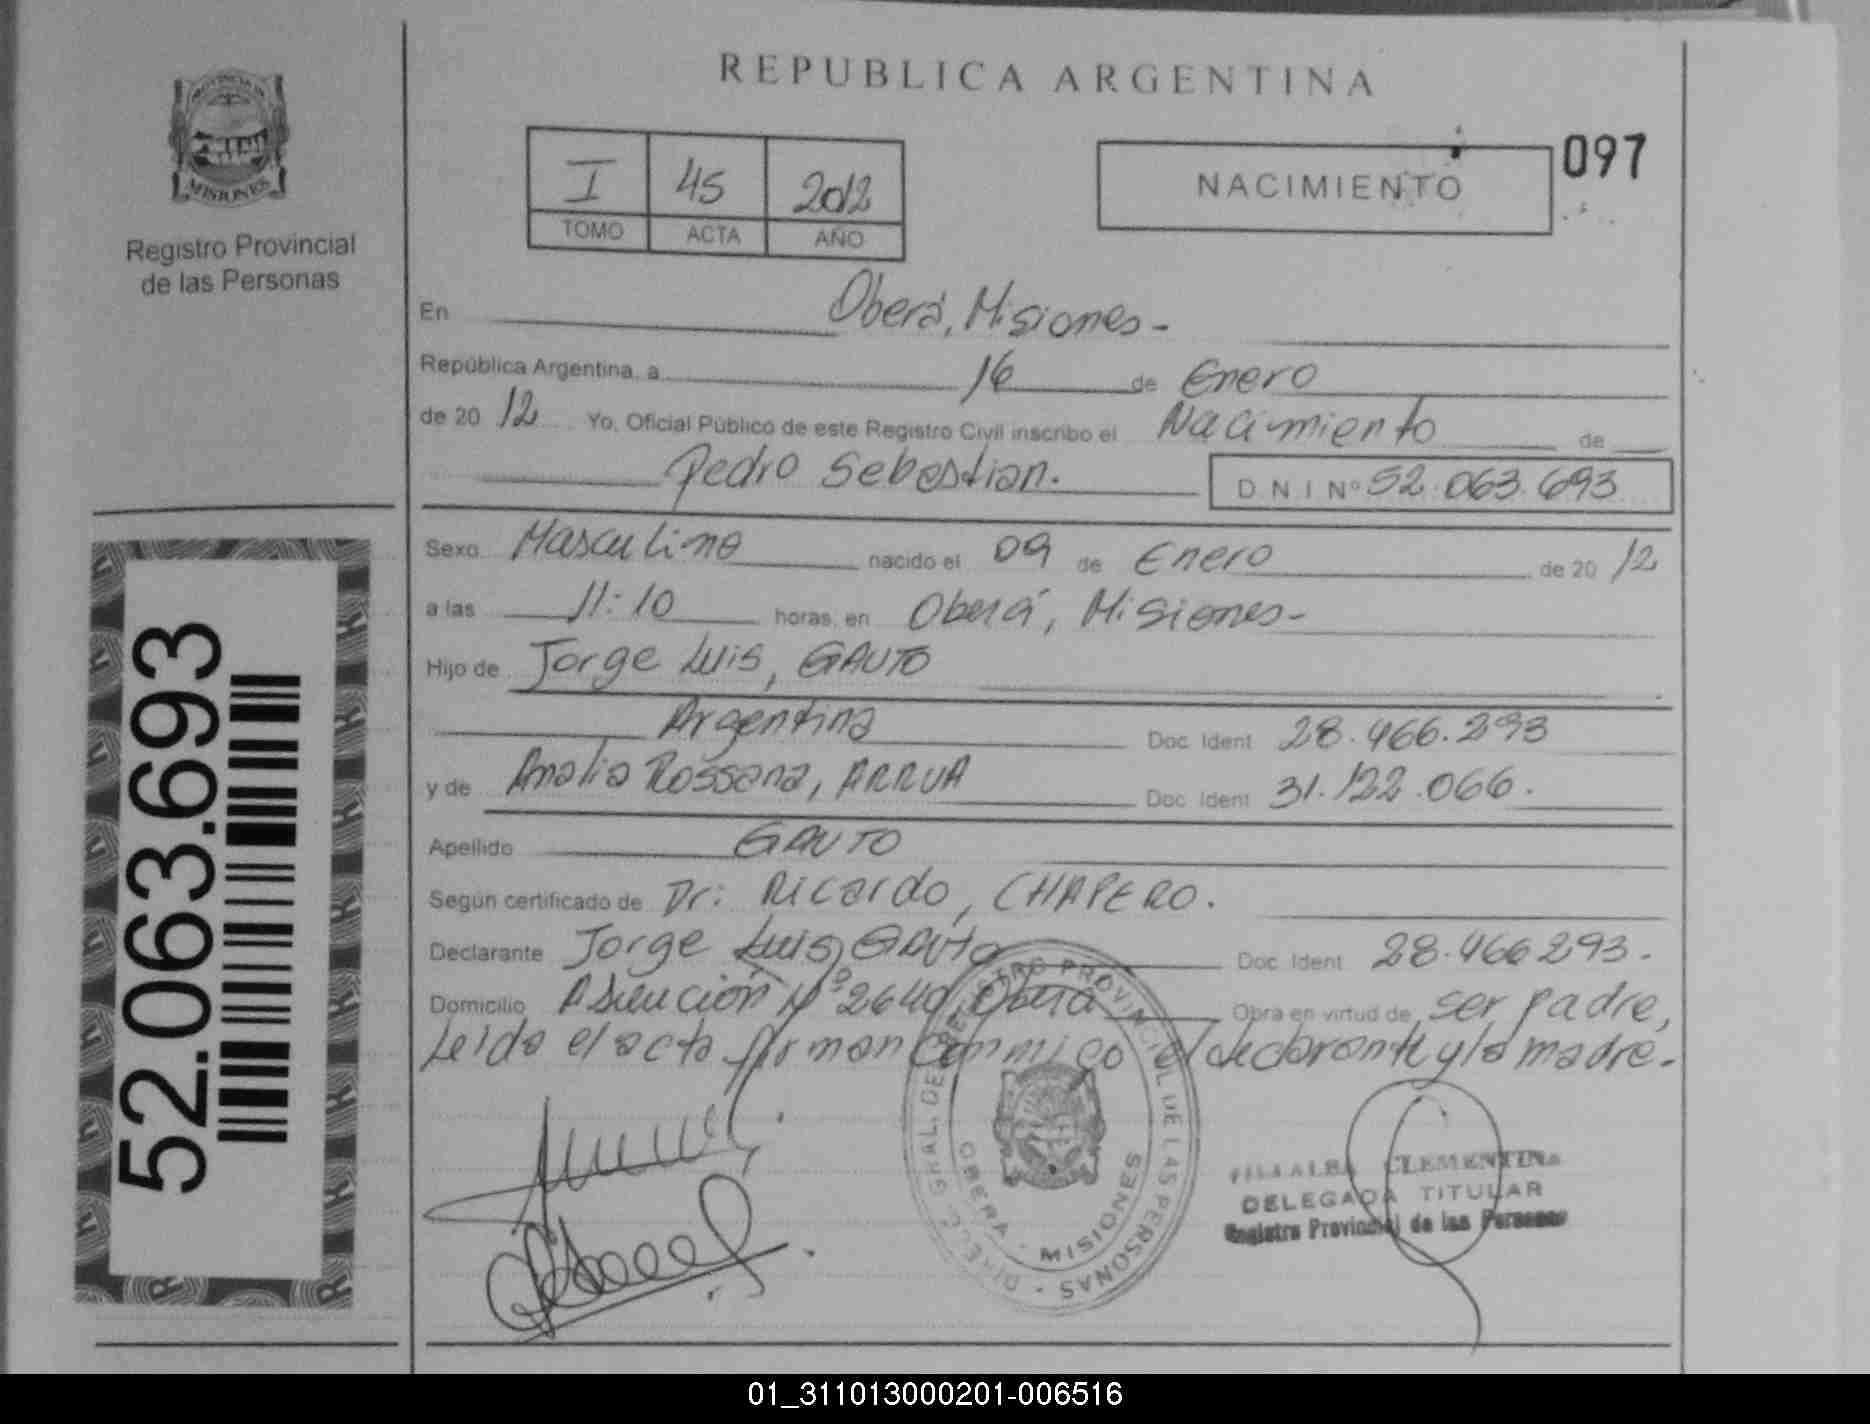 REPUBLICA ARGENTINA
PROVINCIA DE
MISIONES
Registro Provincial
de las Personas
I 45 2012
TOMO ACTA AÑO
NACIMIENTO
097
En Oberá, Misiones-
República Argentina, a 16 de Enero
de 2012 Yo, Oficial Público de este Registro Civil inscribo el Nacimiento de
Pedro Sebastian.
D N I Nº 52.063.693
Sexo Masculino nacido el 09 de Enero de 2012
a las 11:10 horas, en Oberá, Misiones-
Hijo de Jorge Luis, GAUTO
Argentina Doc. Ident 28.466.293
y de Analia Rossana, ARRUA Doc. Ident 31.122.066.
Apellido GAUTO
Según certificado de Dr: Ricardo, CHAPERO.
Declarante Jorge Luis, GAUTO Doc. Ident 28.466293.
Domicilio Asunción Nº 2640 Oberá Obra en virtud de ser padre,
Leida el acta firman conmigo el declarante y la madre.-
52.063.693
DIREC. GRAL. DEL REGISTRO PROVINCIAL DE LAS PERSONAS
OBERA - MISIONES
VILLALBA CLEMENTINA
DELEGADA TITULAR
Registro Provincial de las Personas
01_311013000201-006516